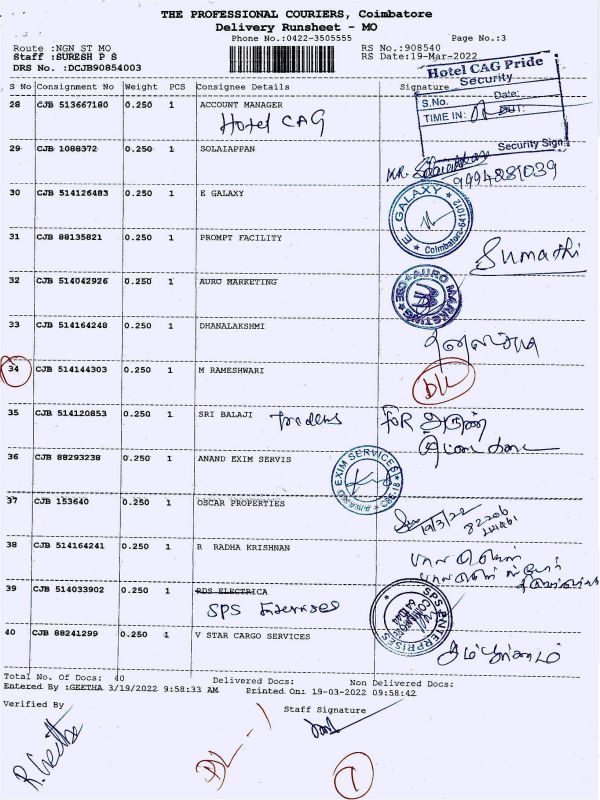 THE PROFESSIONAL COURIERS, Coimbatore
Delivery Runsheet - MO
Phone No.:0422-3505555 Page No.:3
Route :NGN ST MO RS No.:908540
Staff :SURESH P S RS Date:19-Mar-2022
DRS No. :DCJB90854003
Hotel CAG Pride
Security
S.No. Date:
TIME IN: OUT:
Security Sign
S No Consignment No Weight PCS Consignee Details Signature
28 CJB 513667180 0.250 1 ACCOUNT MANAGER
Hotel CAG
29 CJB 1088372 0.250 1 SOLAIAPPAN
9994881039
30 CJB 514126483 0.250 1 E GALAXY
E - GALAXY
Coimbatore-641012
31 CJB 88135821 0.250 1 PROMPT FACILITY
Sumathi
32 CJB 514042926 0.250 1 AURO MARKETING
AURO MARKETING
CBE
33 CJB 514164248 0.250 1 DHANALAKSHMI
34 CJB 514144303 0.250 1 M RAMESHWARI
D/L
35 CJB 514120853 0.250 1 SRI BALAJI Traders FOR அருண்
36 CJB 88293238 0.250 1 ANAND EXIM SERVIS
ANAND EXIM SERVICES
37 CJB 153640 0.250 1 OSCAR PROPERTIES
19/3/22
38 CJB 514164241 0.250 1 R RADHA KRISHNAN
39 CJB 514033902 0.250 1 RDS ELECTRICA
SPS Enterprises
SPS ENTERPRISES
COIMBATORE
40 CJB 88241299 0.250 1 V STAR CARGO SERVICES
Total No. Of Docs: 40 Delivered Docs: Non Delivered Docs:
Entered By :GEETHA 3/19/2022 9:58:33 AM Printed On: 19-03-2022 09:58:42
Verified By Staff Signature
R. Geetha
DL - 1